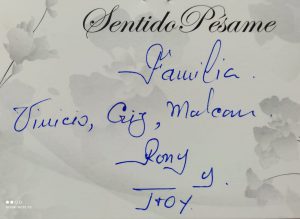 Sentido Pésame
Familia.
Vinicio, Criz, Malcom
Rony y.